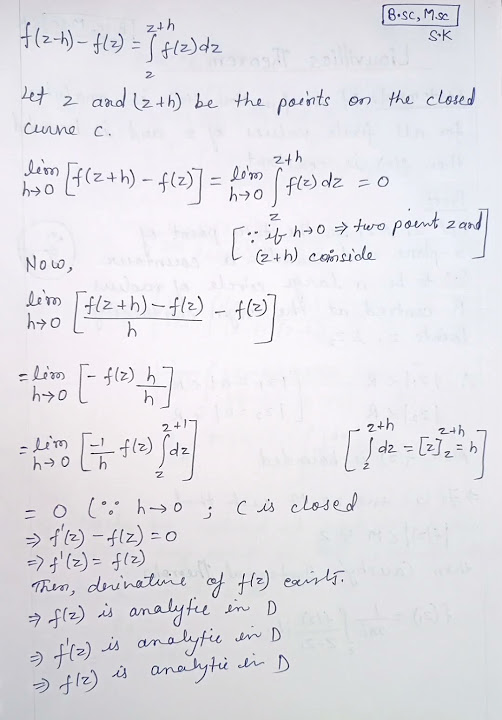 B.sc, M.sc
S.K
f(z-h) - f(z) = ∫_z^{z+h} f(z) dz
Let z and (z+h) be the points on the closed
curve c.
lim_{h→0} [f(z+h) - f(z)] = lim_{h→0} ∫_z^{z+h} f(z) dz = 0
[∵ if h→0 ⇒ two point z and
(z+h) coinside]
Now,
lim_{h→0} [(f(z+h) - f(z))/h - f(z)]
= lim_{h→0} [-f(z) h/h]
= lim_{h→0} [-1/h f(z) ∫_z^{z+1} dz] [∫_z^{z+h} dz = [z]_z^{z+h} = h]
= 0 (∵ h→0 ; C is closed
⇒ f'(z) - f(z) = 0
⇒ f'(z) = f(z)
Then, derivative of f(z) exists.
⇒ f(z) is analytic in D
⇒ f'(z) is analytic in D
⇒ f(z) is analytic in D